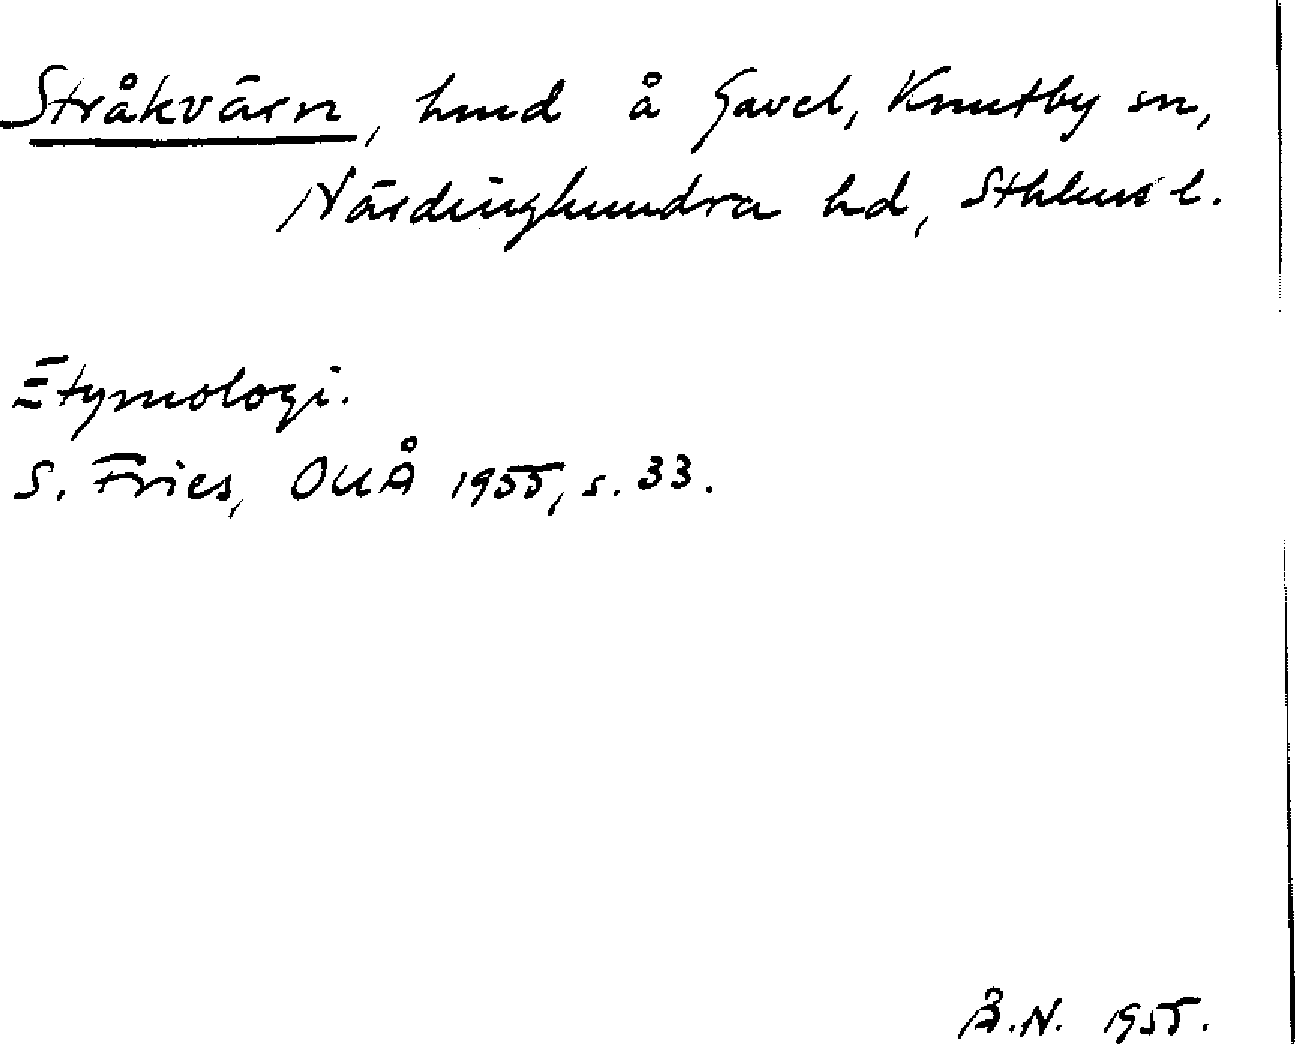 Stråkvärn, hmd å Gavel, Knutby sn,
Närdinghundra hd, Sthlms l.
Etymologi.
S. Fries, OUÅ 1955, s. 33.
Å.N. 1955.